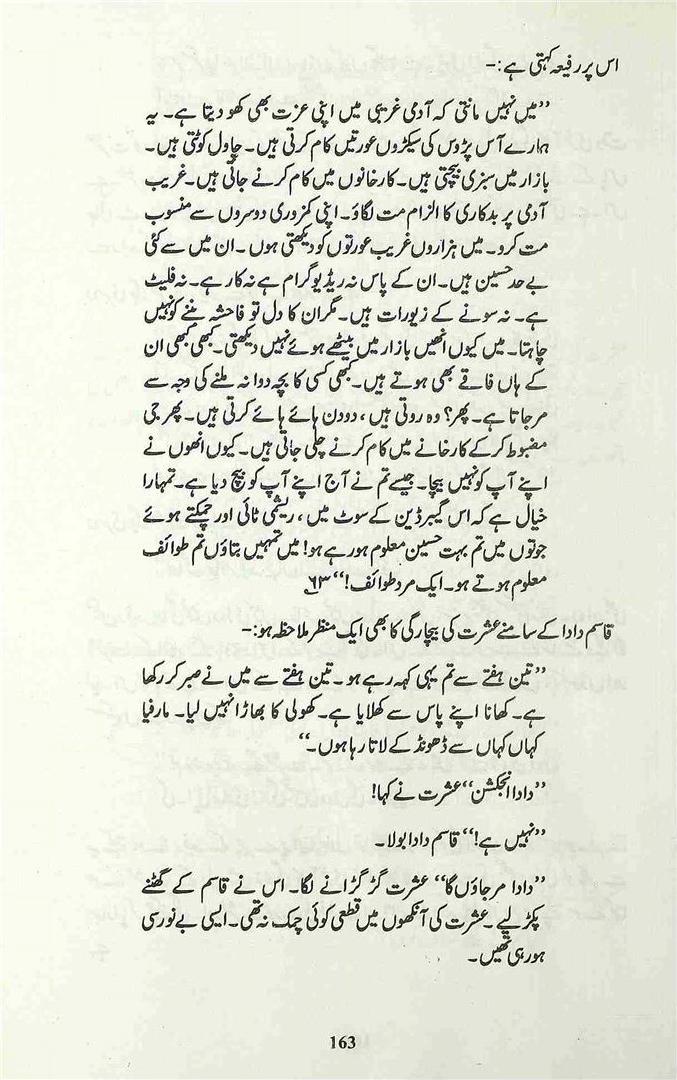 اس پر رفیعہ کہتی ہے:-
”میں نہیں مانتی کہ آدمی غریبی میں اپنی عزت بھی کھو دیتا ہے۔ یہ
ہمارے آس پڑوس کی سیکڑوں عورتیں کام کرتی ہیں۔ چاول کوٹتی ہیں۔
بازار میں سبزی بیچتی ہیں۔ کارخانوں میں کام کرنے جاتی ہیں۔ غریب
آدمی پر بدکاری کا الزام مت لگاؤ۔ اپنی کمزوری دوسروں سے منسوب
مت کرو۔ میں ہزاروں غریب عورتوں کو دیکھتی ہوں۔ ان میں سے کئی
بے حد حسین ہیں۔ ان کے پاس نہ ریڈیو گرام ہے نہ کار ہے۔ نہ فلیٹ
ہے۔ نہ سونے کے زیورات ہیں۔ مگر ان کا دل تو فاحشہ بننے کو نہیں
چاہتا۔ میں کیوں انھیں بازار میں بیٹھے ہوئے نہیں دیکھتی۔ کبھی کبھی ان
کے ہاں فاقے بھی ہوتے ہیں۔ کبھی کسی کا بچہ دوا نہ ملنے کی وجہ سے
مر جاتا ہے۔ پھر؟ وہ روتی ہیں، دو دن ہائے ہائے کرتی ہیں۔ پھر جی
مضبوط کر کے کارخانے میں کام کرنے چلی جاتی ہیں۔ کیوں انھوں نے
اپنے آپ کو نہیں بیچا۔ جیسے تم نے آج اپنے آپ کو بیچ دیا ہے۔ تمہارا
خیال ہے کہ اس گیبرڈین کے سوٹ میں، ریشمی ٹائی اور چمکتے ہوئے
جوتوں میں تم بہت حسین معلوم ہو رہے ہو! میں تمہیں بتاؤں تم طوائف
معلوم ہوتے ہو۔ ایک مرد طوائف!“ ۶۳
قاسم دادا کے سامنے عشرت کی بیچارگی کا بھی ایک منظر ملاحظہ ہو:-
”تین ہفتے سے تم یہی کہہ رہے ہو۔ تین ہفتے سے میں نے صبر کر رکھا
ہے۔ کھانا اپنے پاس سے کھلایا ہے۔ کھولی کا بھاڑا نہیں لیا۔ مارفیا
کہاں کہاں سے ڈھونڈ کے لاتا رہا ہوں۔“
”دادا انجکشن“ عشرت نے کہا!
”نہیں ہے!“ قاسم دادا بولا۔
”دادا مر جاؤں گا“ عشرت گڑگڑانے لگا۔ اس نے قاسم کے گھٹنے
پکڑ لیے۔ عشرت کی آنکھوں میں قطعی کوئی چمک نہ تھی۔ ایسی بے نور سی
ہو رہی تھیں۔
163